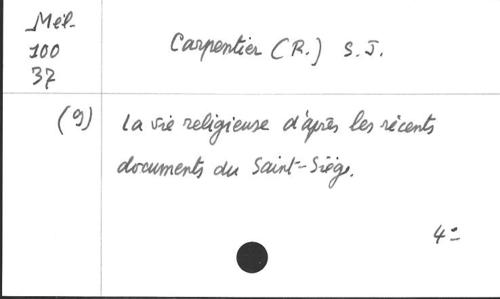 Mél.
100
37
Carpentier (R.) S.J.
(9) La vie religieuse d'après les récents
documents du Saint-Siège.
4º